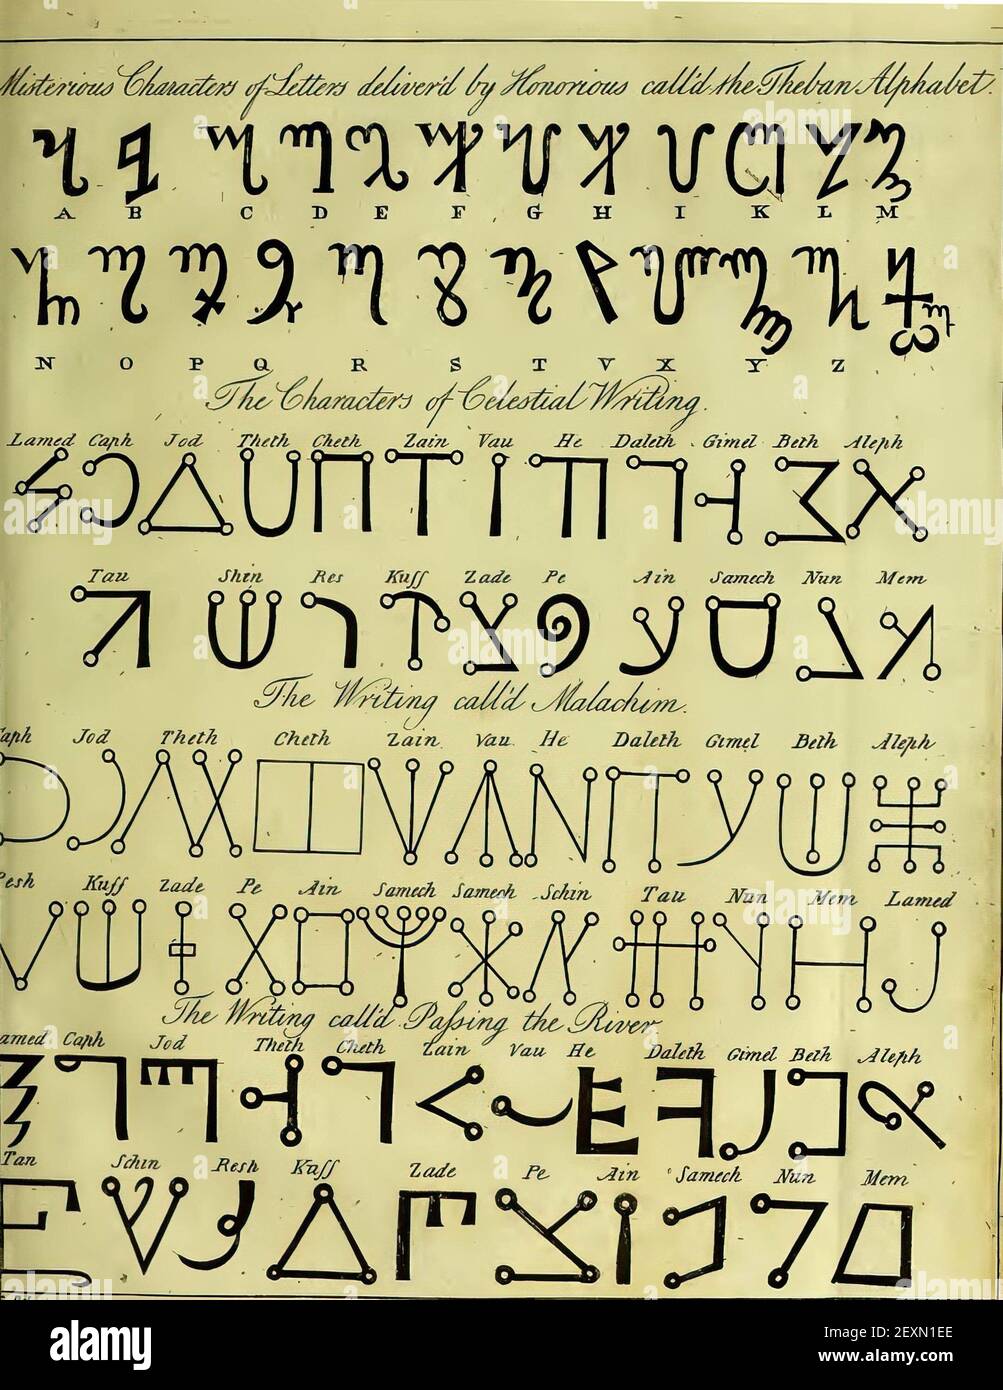 Misterious Characters of Letters deliver'd by Honorious call'd the Theban Alphabet.
A B C D E F G H I K L M
N O P Q R S T V X Y Z
The Characters of Celestial Writing.
Lamed Caph Jod Theth Cheth Zain Vau He Daleth Gimel Beth Aleph
Tau Shin Res Kuff Zade Pe Ain Samech Nun Mem
The Writing call'd Malachim.
Caph Jod Theth Cheth Zain Vau He Daleth Gimel Beth Aleph
Resh Kuff Zade Pe Ain Samech Samech Schin Tau Nun Mem Lamed
The Writing call'd Passing the River
Lamed Caph Jod Theth Cheth Zain Vau He Daleth Gimel Beth Aleph
Tau Schin Resh Kuff Zade Pe Ain Samech Nun Mem
alamy
Image ID: 2EXN1EE
www.alamy.com